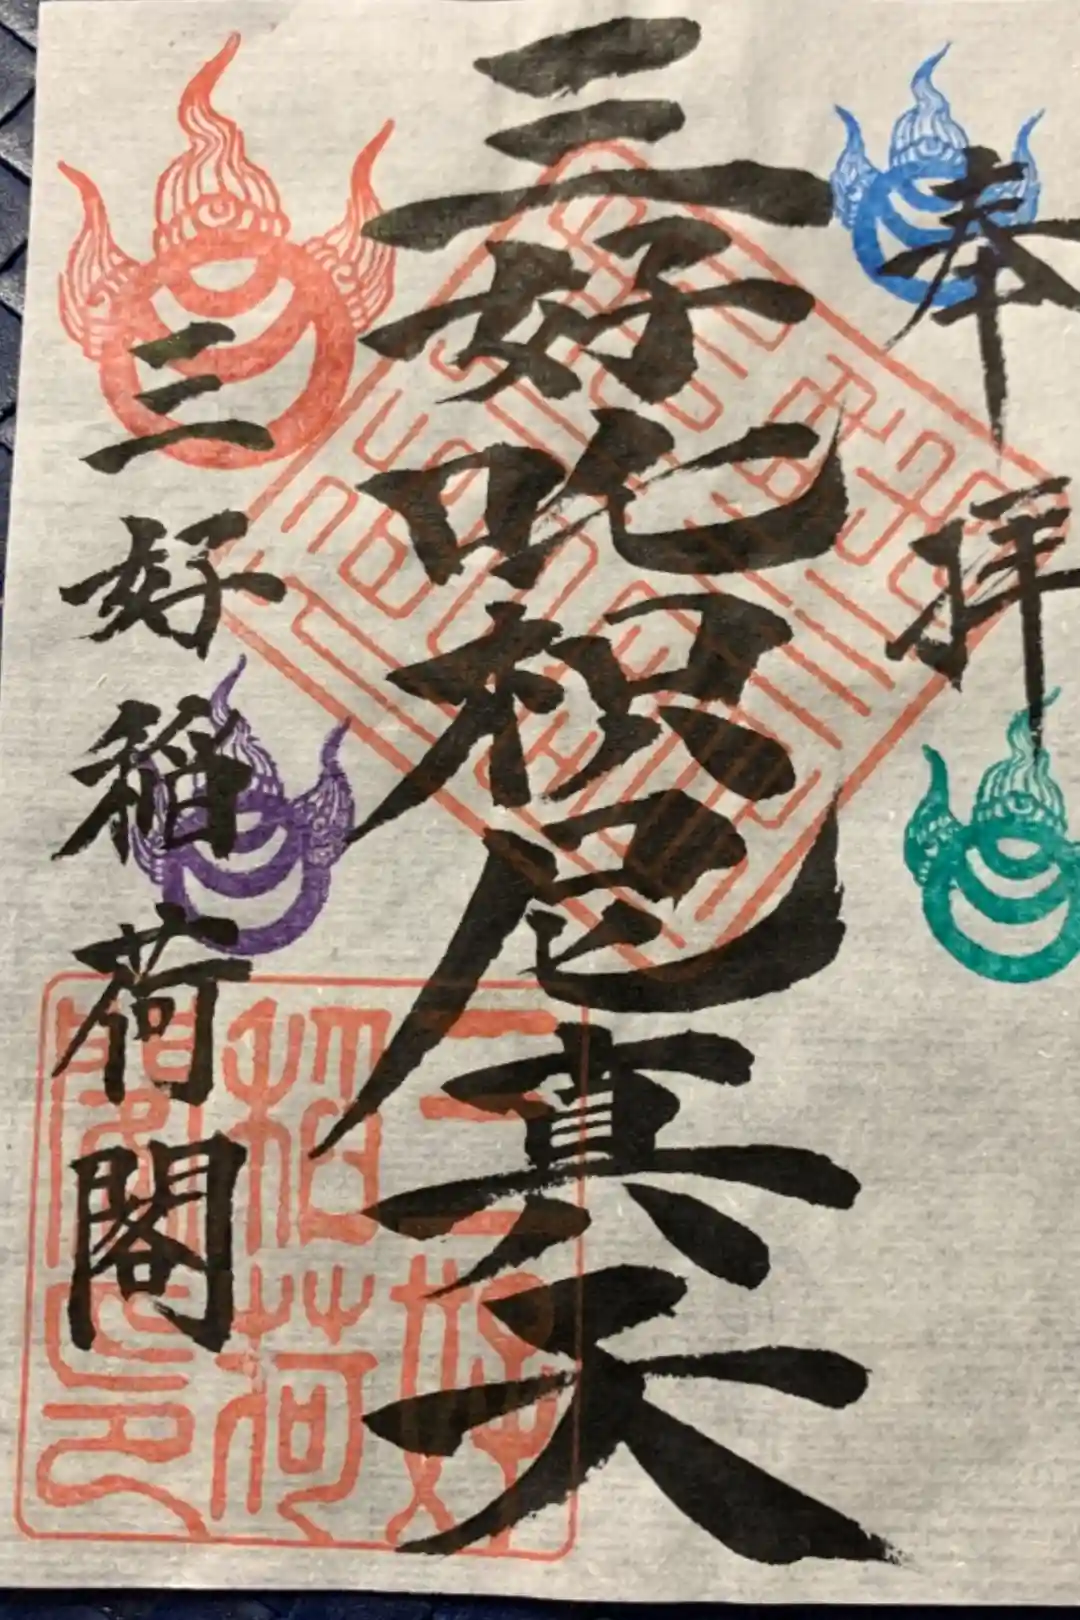 奉拝
三好叱枳尼真天
三好稲荷閣
三好稲荷閣印